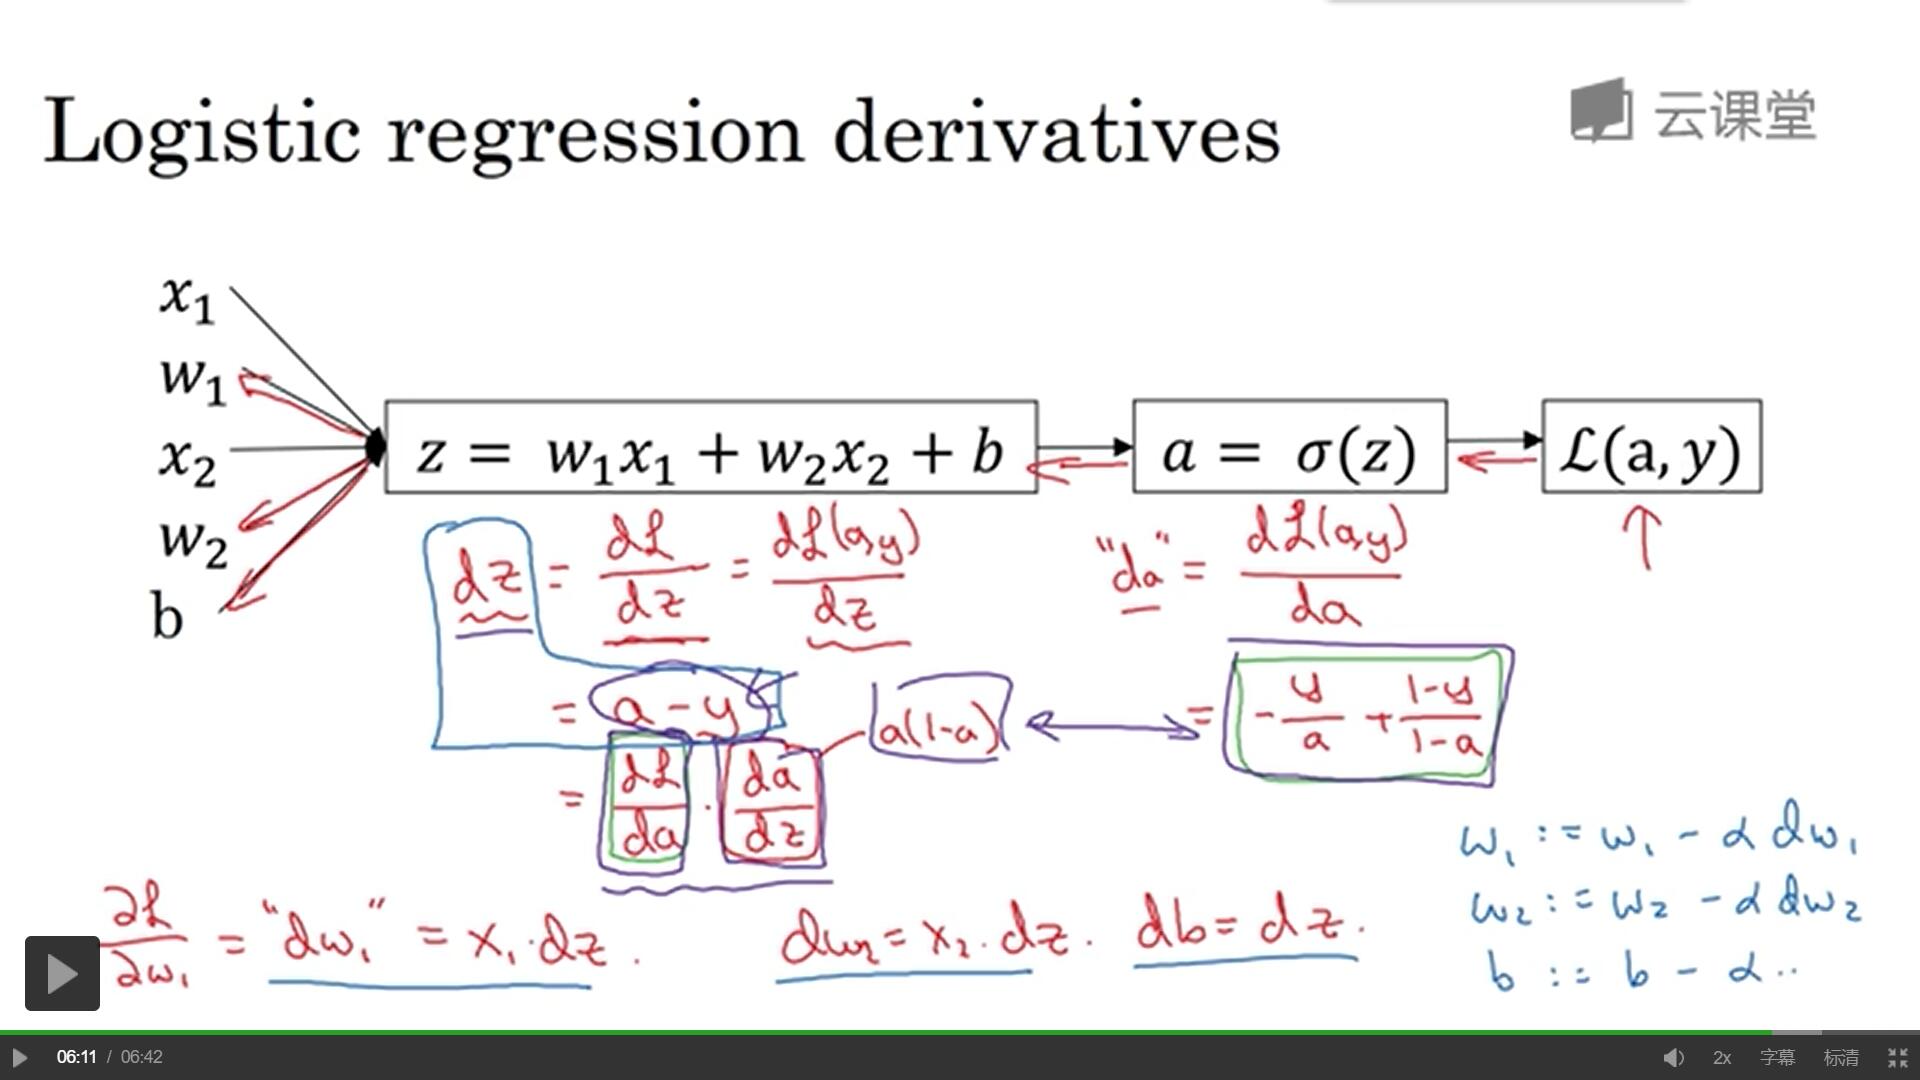 Logistic regression derivatives
云课堂
x₁
w₁
x₂
w₂
b
z = w₁x₁ + w₂x₂ + b
a = σ(z)
ℒ(a, y)
dz = dℒ/dz = dℒ(a,y)/dz
"da" = dℒ(a,y)/da
= a - y
a(1-a)
= -y/a + (1-y)/(1-a)
= dℒ/da · da/dz
∂ℒ/∂w₁ = "dw₁" = x₁·dz.
dw₂ = x₂·dz.
db = dz.
w₁ := w₁ - α dw₁
w₂ := w₂ - α dw₂
b := b - α ..
06:11 / 06:42
2x
字幕
标清